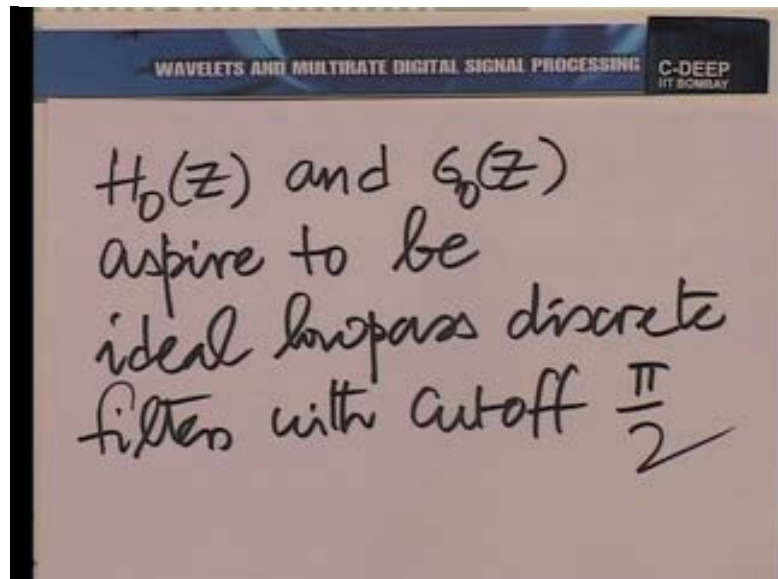 WAVELETS AND MULTIRATE DIGITAL SIGNAL PROCESSING
C-DEEP
IIT BOMBAY
H₀(Z) and G₀(Z)
aspire to be
ideal lowpass discrete
filters with cutoff π/2